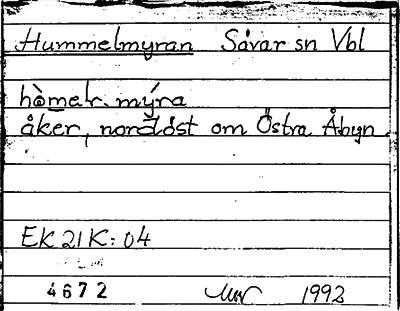 Hummelmyran Sävar sn Vbl
åker, nordost om Östra Åbyn.
EK 21K:04
4672 1992